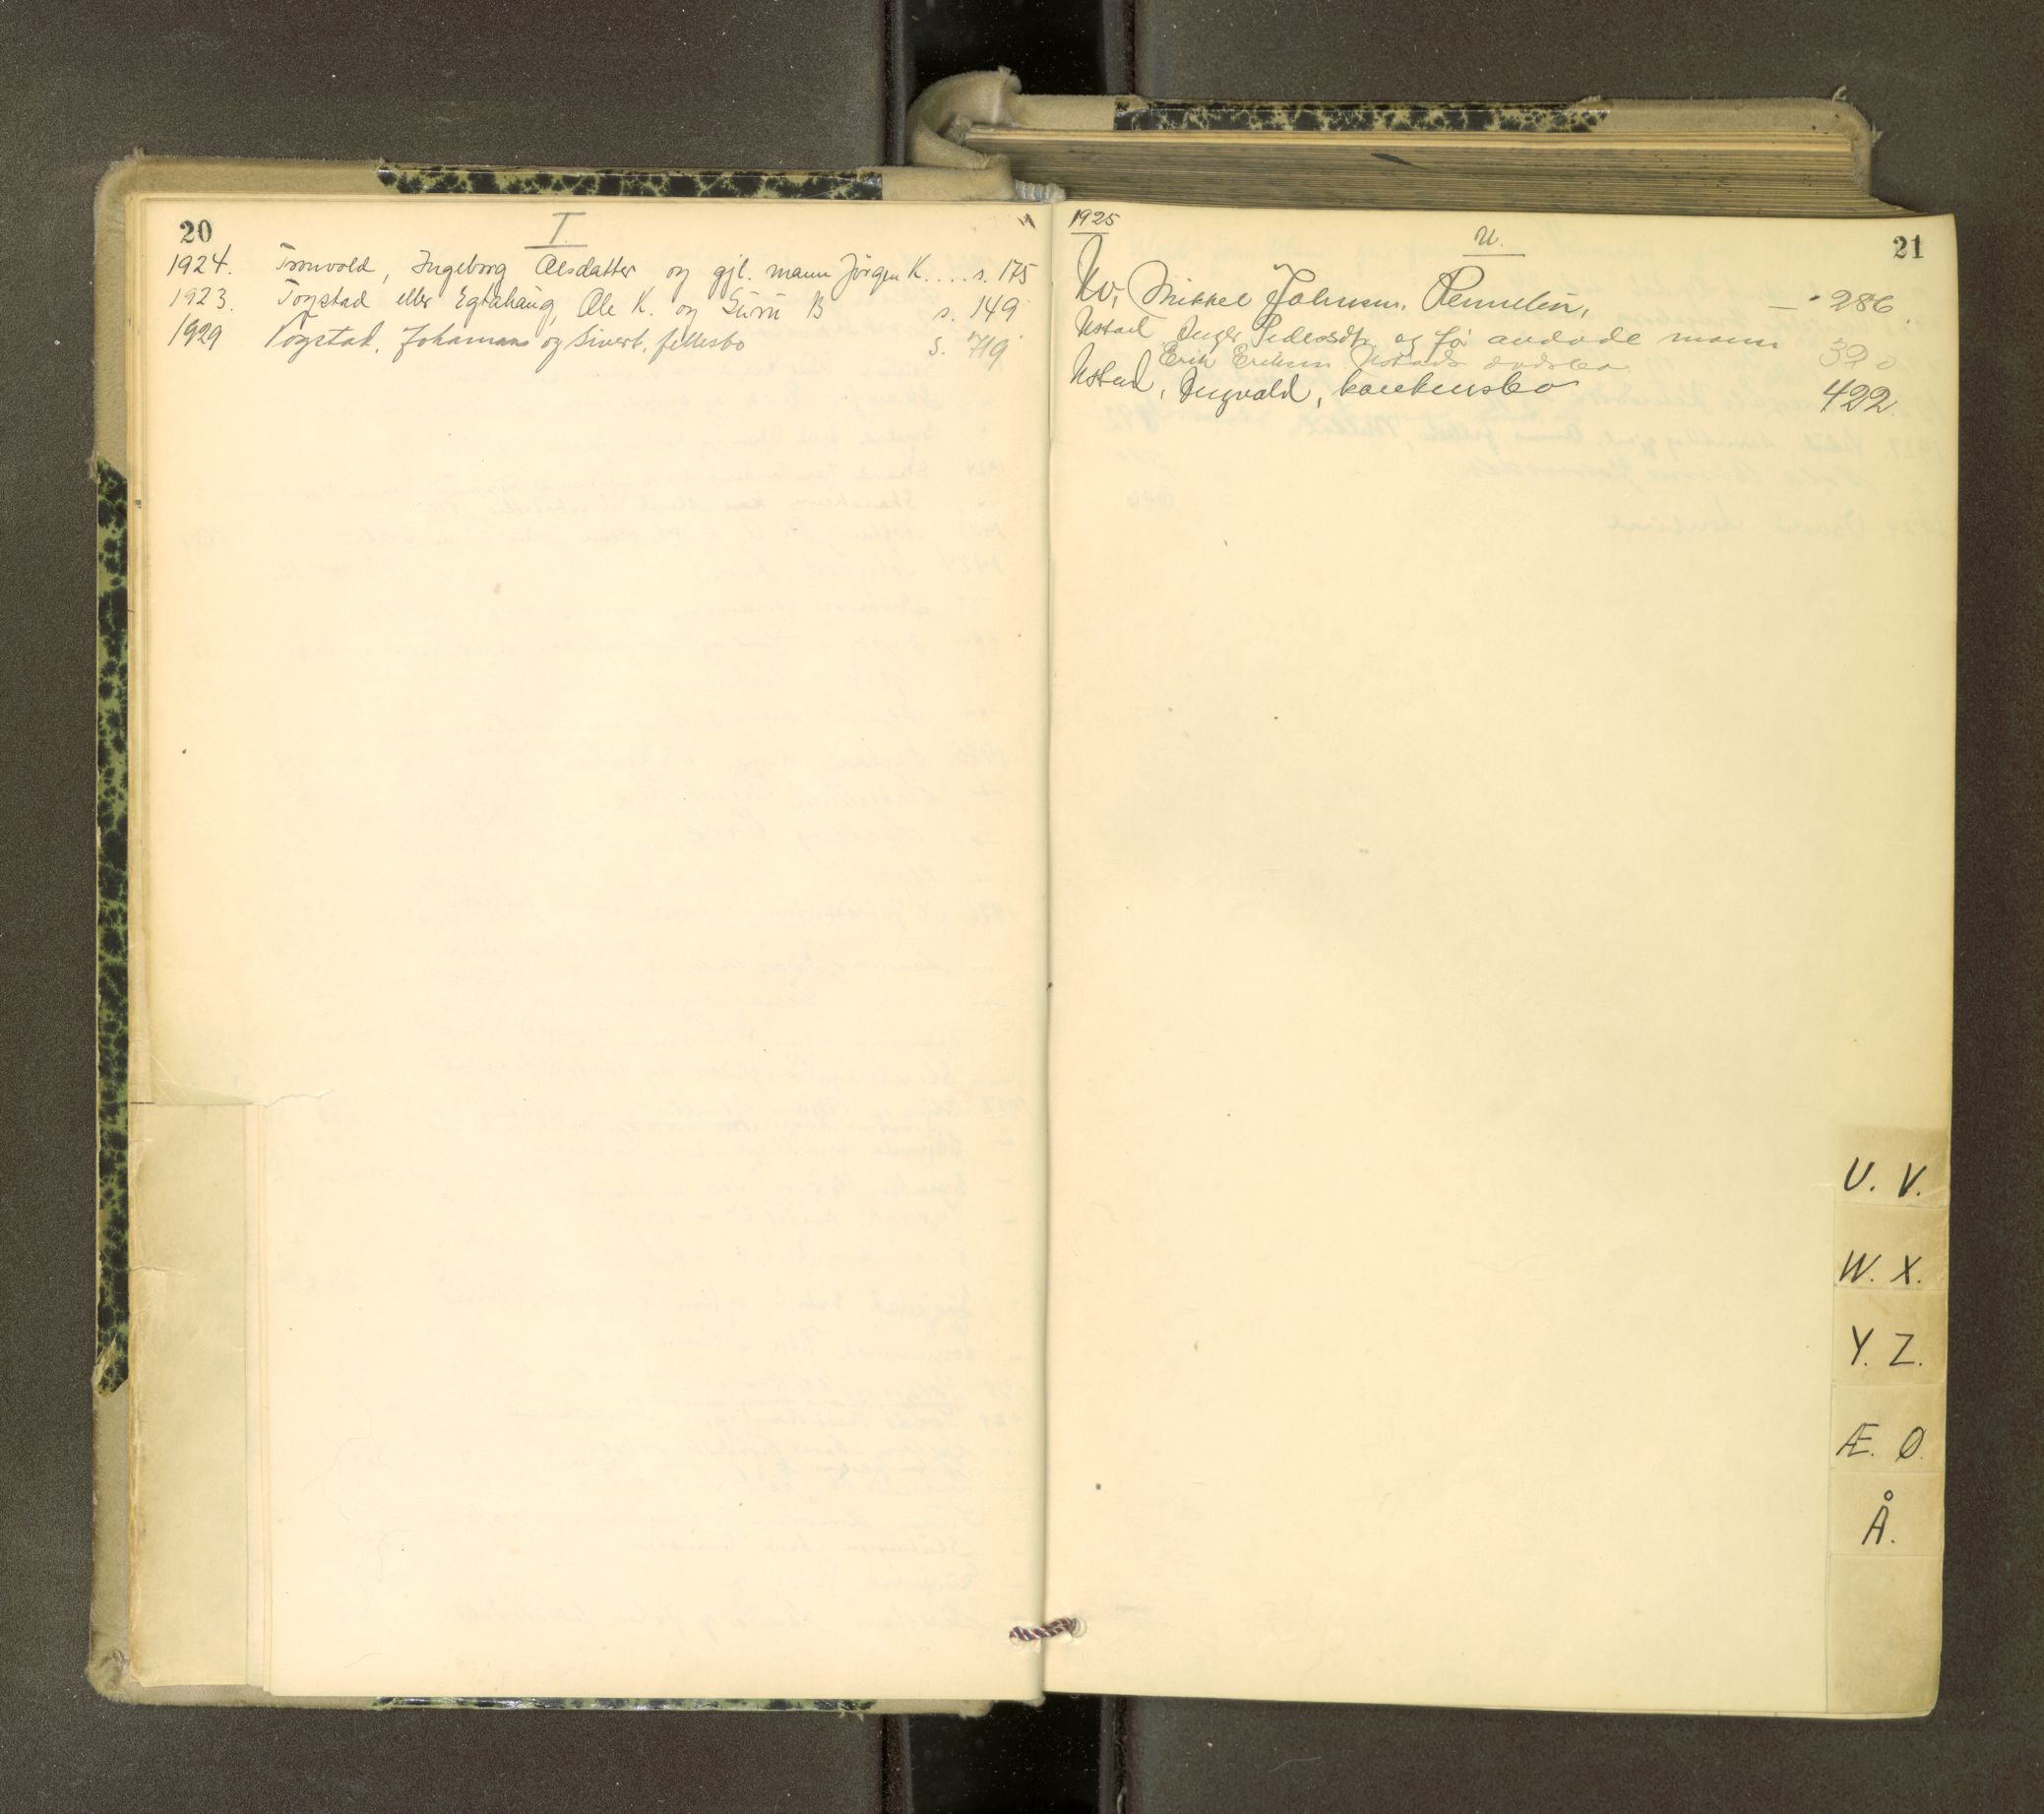 20
T.
1924. Ingeborg Olsdatter og gjl. mann Jörgen K. .... s. 175
1923. Togstad eller Eglahaug, Ole K. og Guru B s. 149
1929 Togstad, Johannes og Sivert. fellesbo s. 419
1925
U.
21
Uv, Mikkel Johnsen, Rennebu, — 286.
Ustad Inger Pedersdtr. og før avdøde mann 390
Erik Eriksen Ustads dødsbo
Ustad, Ingvald, konkursbo 422.
U. V.
W. X.
Y. Z.
Æ. Ø.
Å.